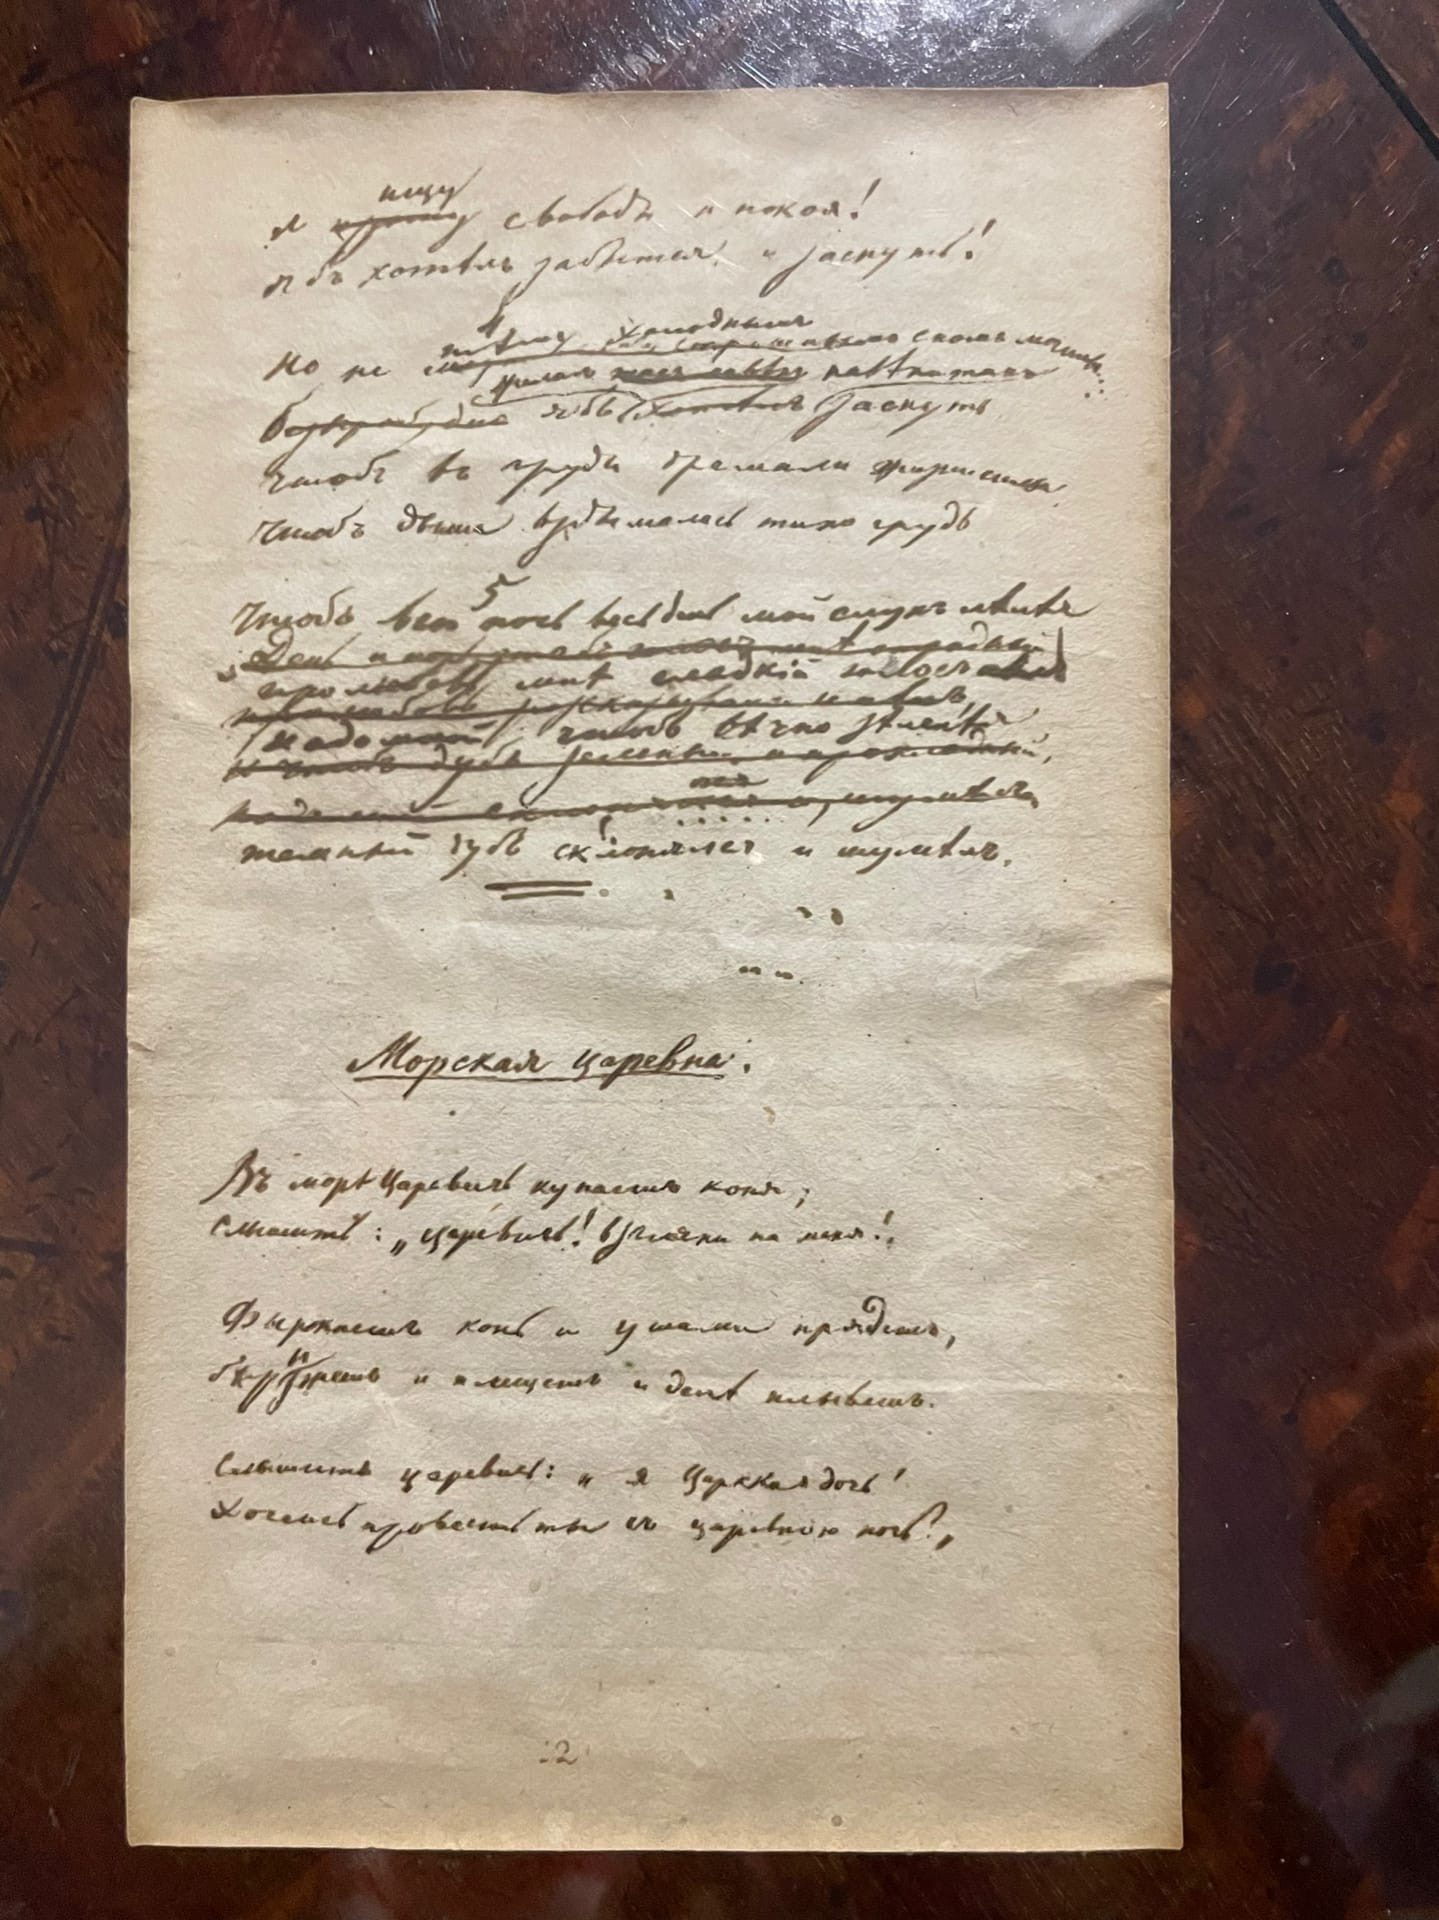 ищу
я прошу свободы и покоя!
Я бъ хотѣлъ забыться и заснуть!
4
тѣмъ холоднымъ сномъ могилы...
Но не
желалъ навѣки такъ
я бъ хотѣлъ заснуть
Чтобъ въ груди дремали жизни силы
Чтобъ дыша вздымалась тихо грудь
5
Чтобъ всю ночь весь день мой слухъ лелѣя
День и ночь
про любовь мнѣ сладкій голосъ пѣлъ
надо мной чтобъ вѣчно зеленѣя
и чтобъ дубъ зеленый и прохладный,
надо мной склонялся и шумѣлъ
темный дубъ склонялся и шумѣлъ.
Морская царевна.
Въ морѣ Царевичъ купаетъ коня;
Слышитъ: „Царевичь! взгляни на меня!
Фыркаетъ конь и ушами прядетъ,
брызжетъ и плещетъ и далѣ плыветъ.
Слышитъ царевичь: „я Царская дочь!
Хочешь провесть ты съ царевною ночь?„
2